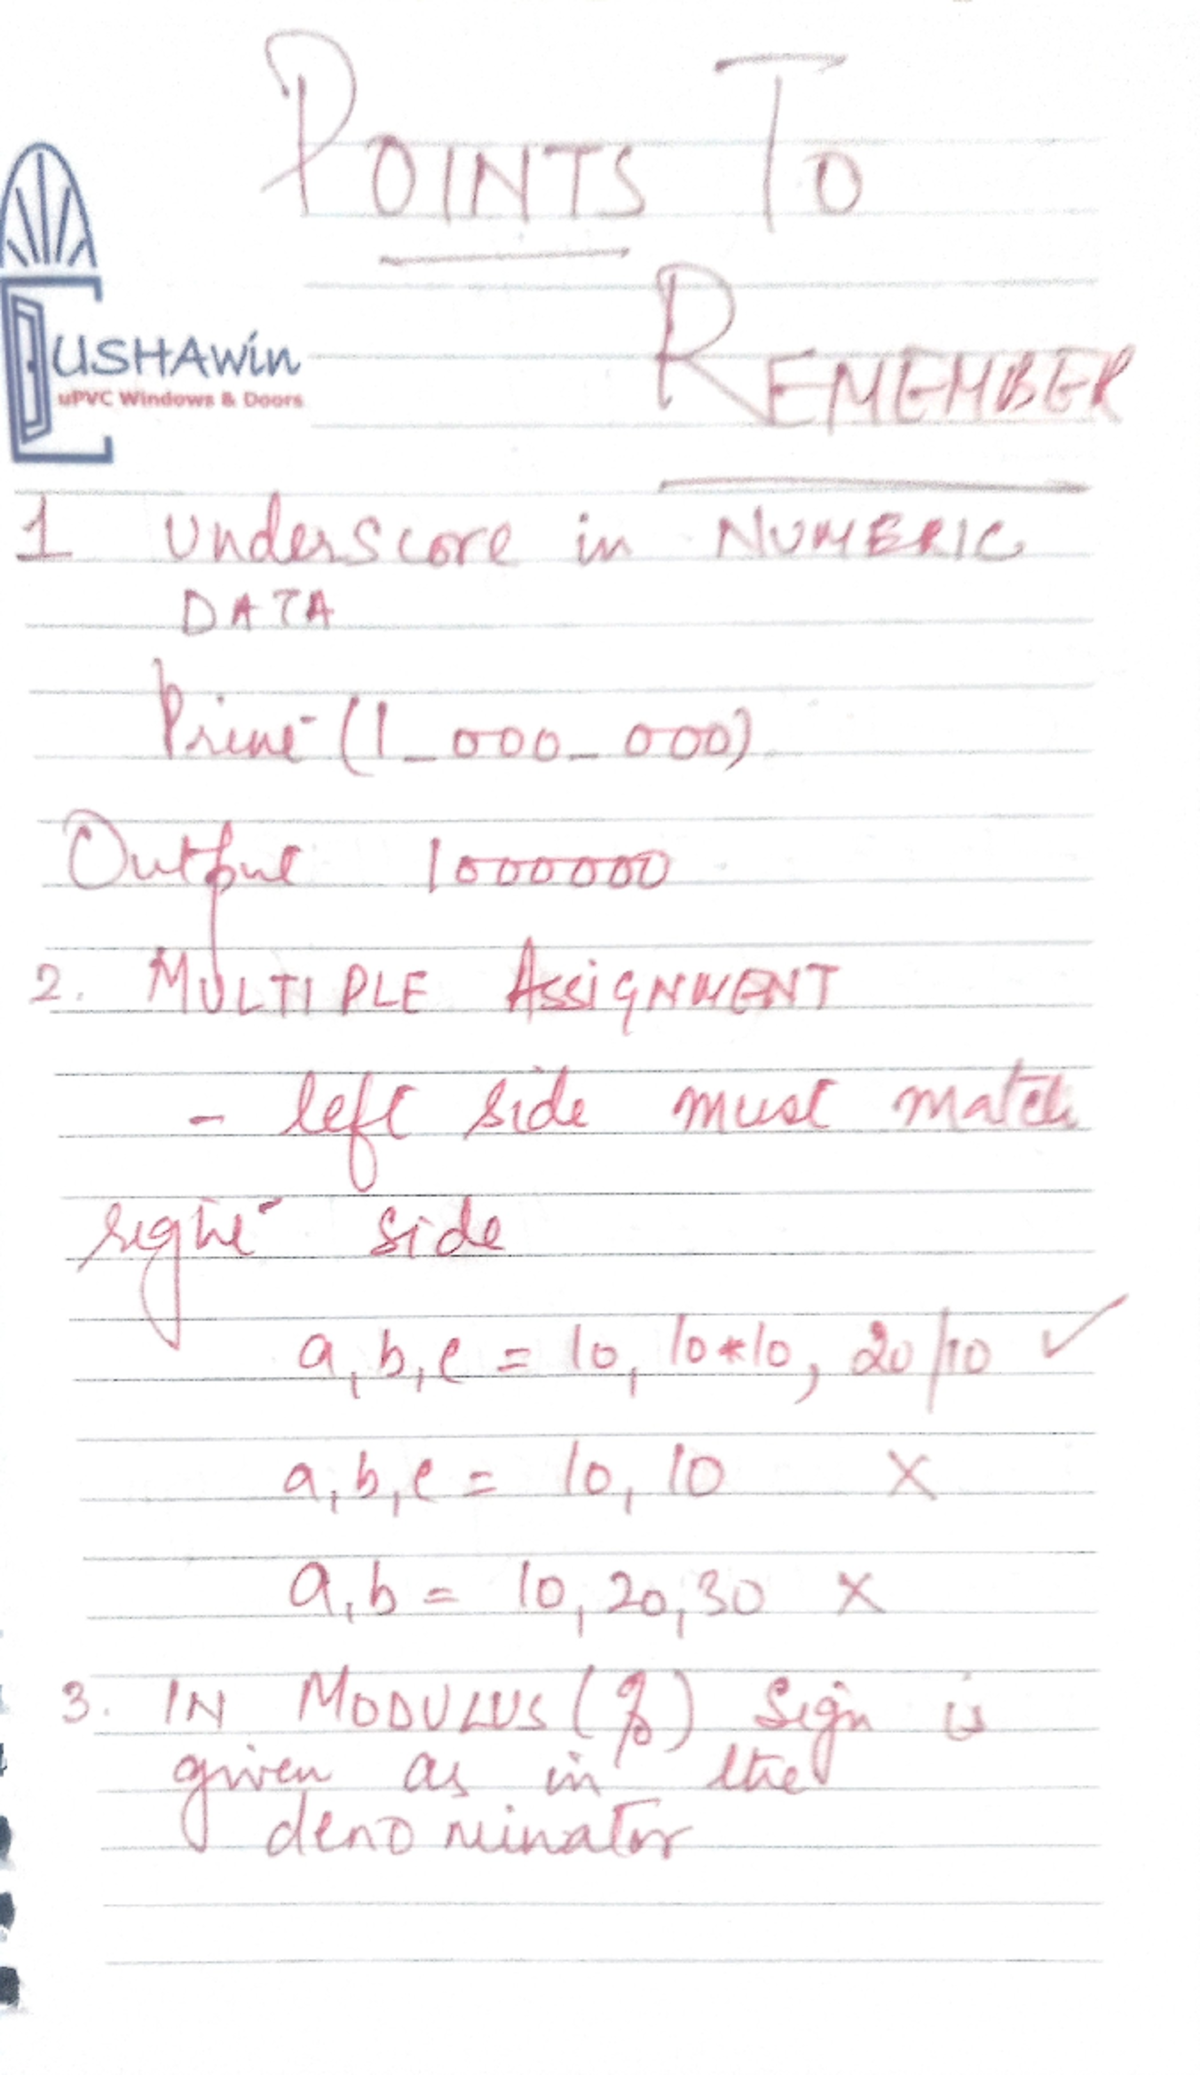 POINTS TO
REMEMBER
USHAWin
uPVC Windows & Doors
1 Underscore in NUMERIC
DATA
Print (1_000_000)
Output 1000000
2. MULTIPLE ASSIGNMENT
- left side must match
right side
a, b, c = 10, 10*10, 20/10 ✓
a, b, c = 10, 10 X
a, b = 10, 20, 30 X
3. IN MODULUS (%) Sign is
given as in the
denominator